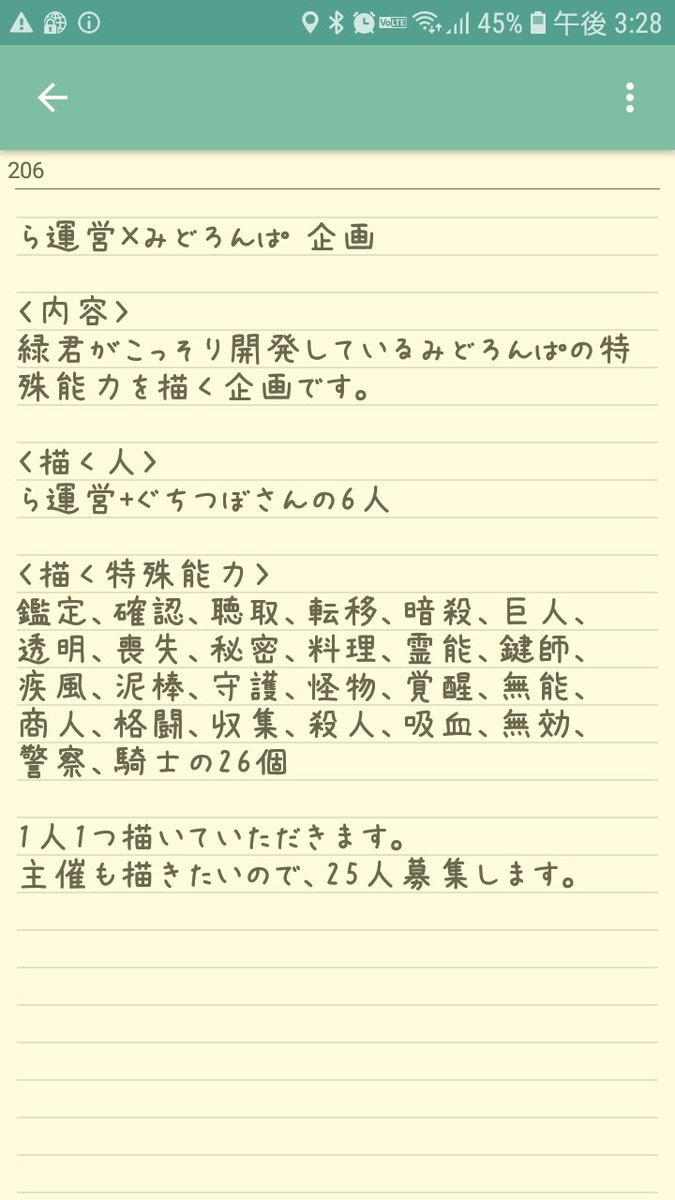 45% 午後 3:28
206
ら運営×みどろんぱ 企画
<内容>
緑君がこっそり開発しているみどろんぱの特
殊能力を描く企画です。
<描く人>
ら運営+ぐちつぼさんの6人
<描く特殊能力>
鑑定、確認、聴取、転移、暗殺、巨人、
透明、喪失、秘密、料理、霊能、鍵師、
疾風、泥棒、守護、怪物、覚醒、無能、
商人、格闘、収集、殺人、吸血、無効、
警察、騎士の26個
1人1つ描いていただきます。
主催も描きたいので、25人募集します。